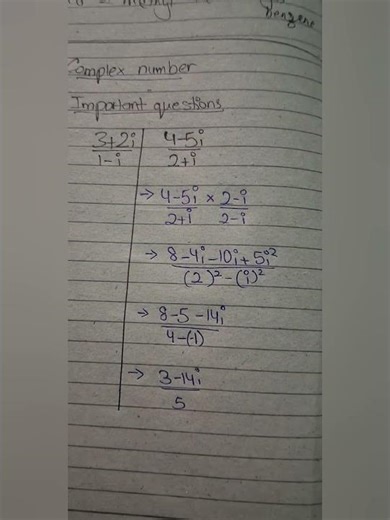 Benzene
Complex number
Important questions
3+2i / 1-i
4-5i / 2+i
→ 4-5i / 2+i × 2-i / 2-i
→ 8-4i-10i+5i² / (2)²-(i)²
→ 8-5-14i / 4-(-1)
→ 3-14i / 5